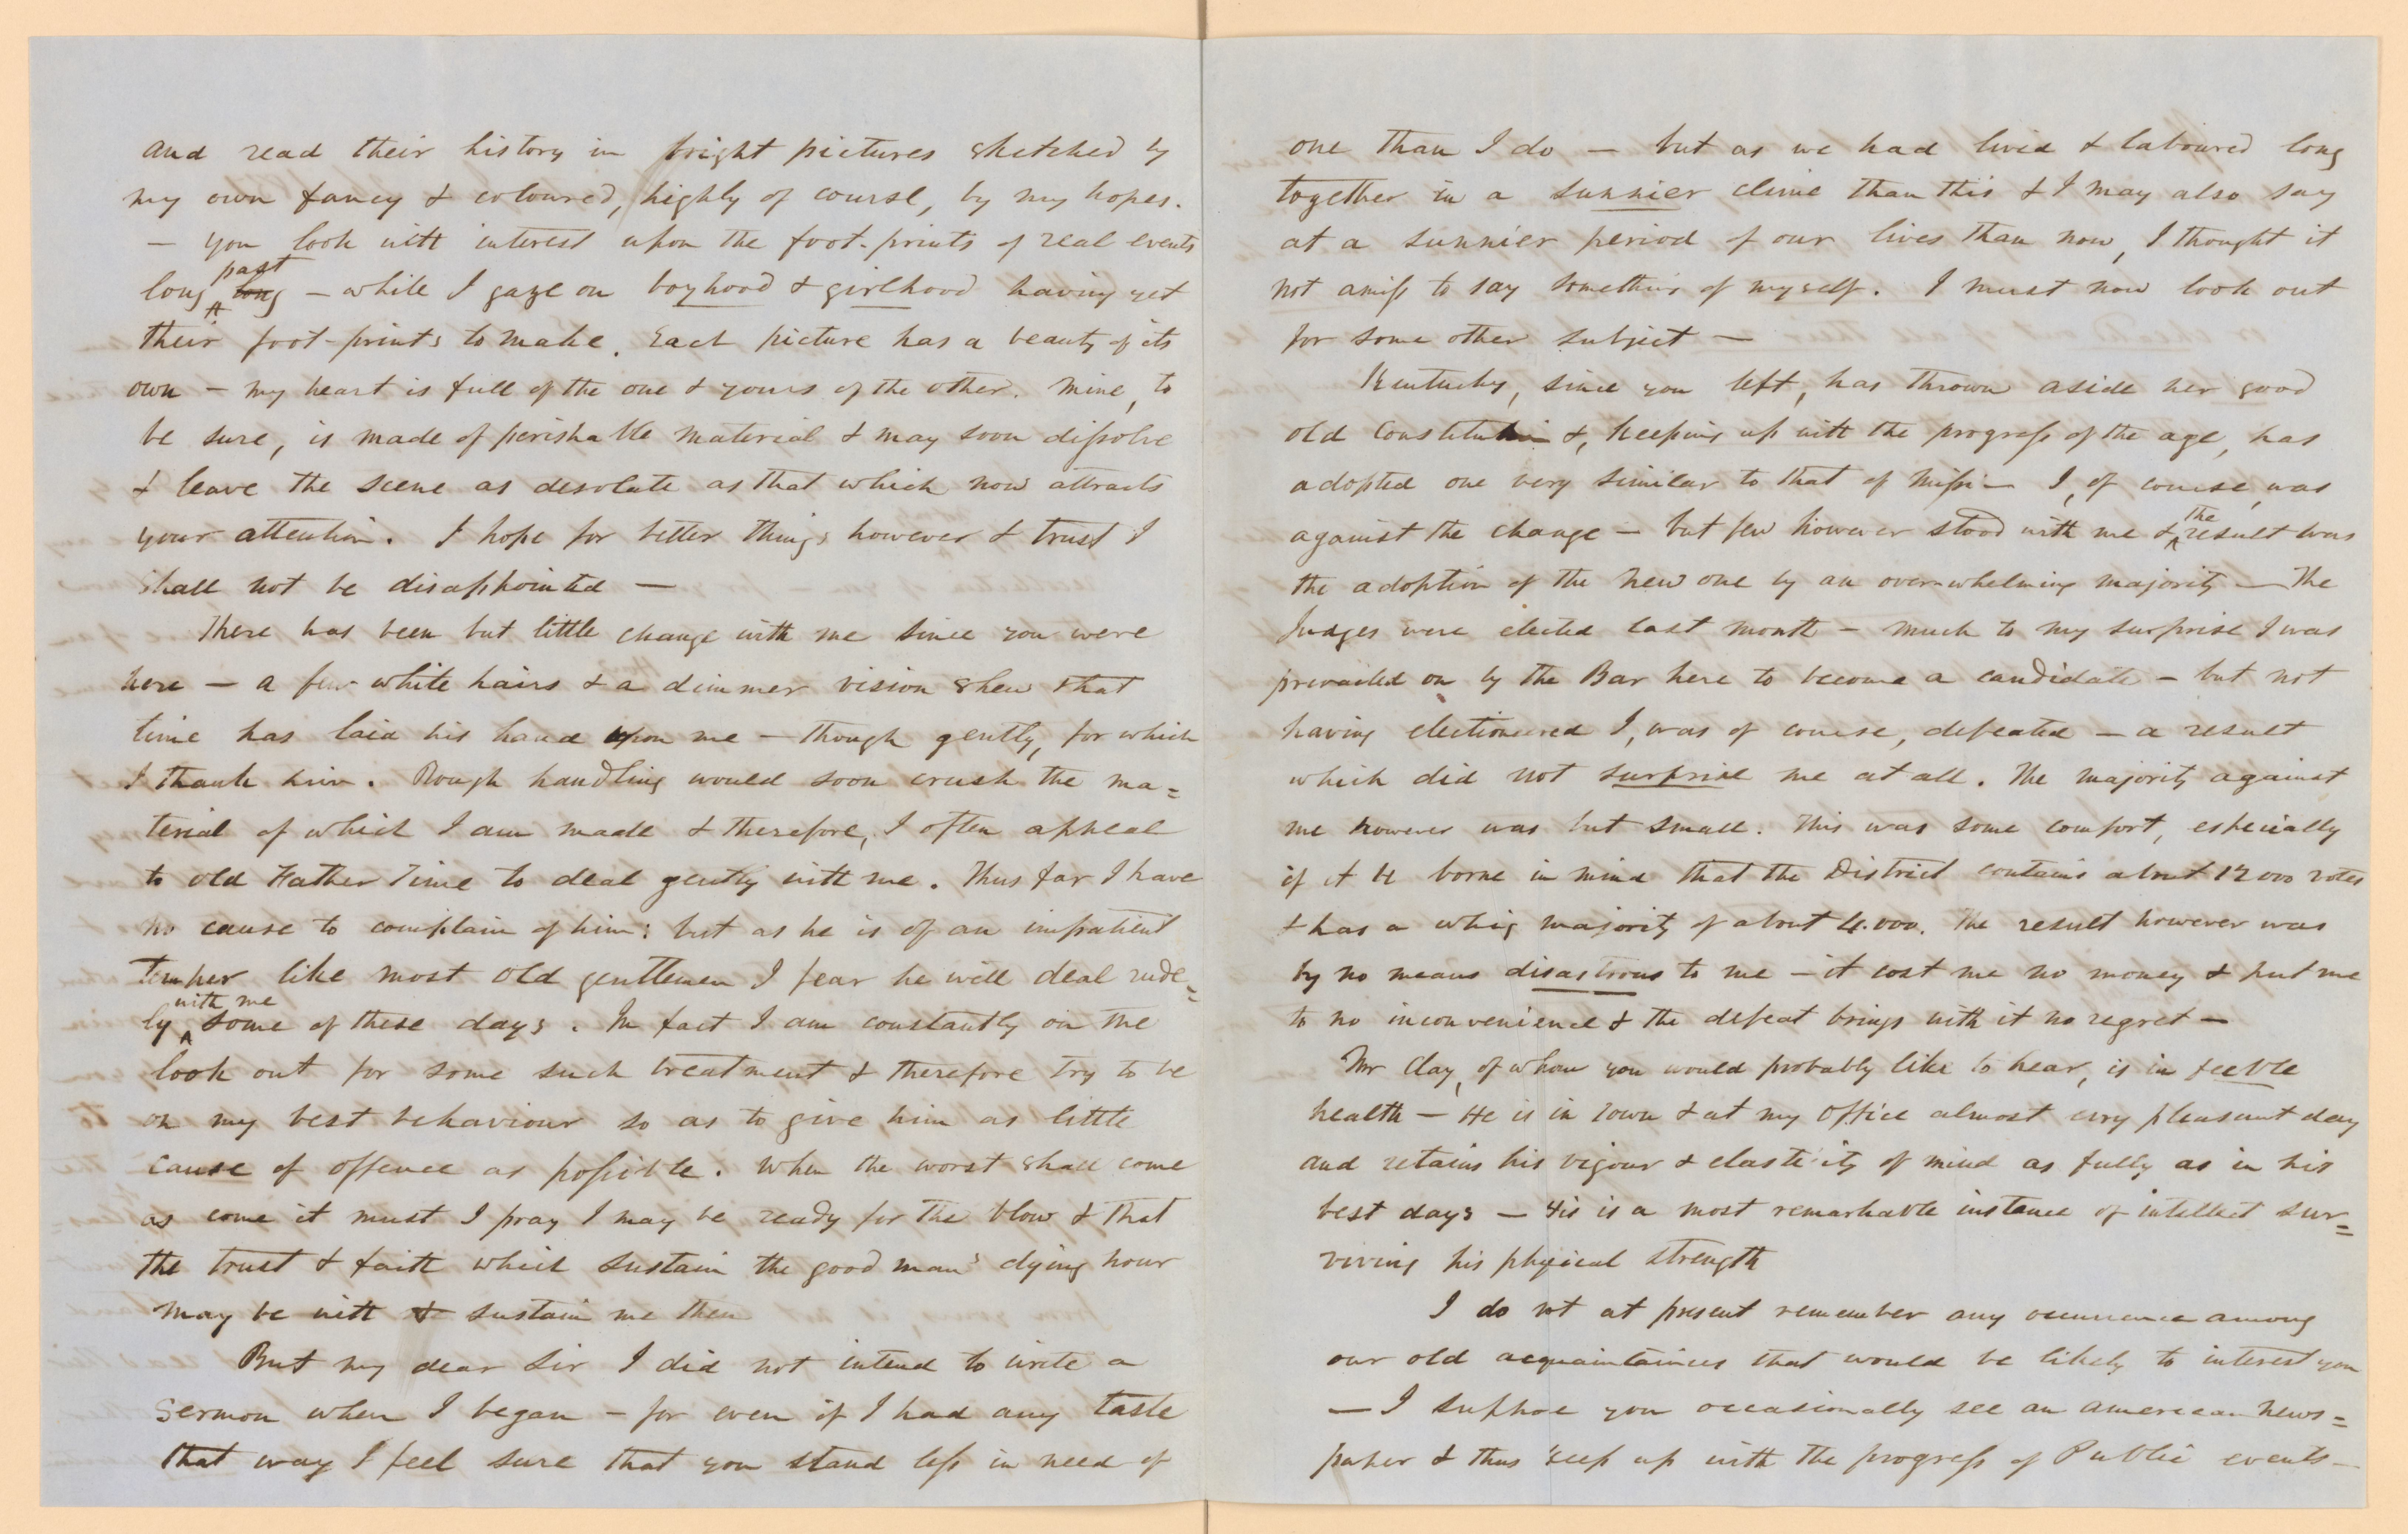 and read their history in bright pictures sketched by
my own fancy & coloured, highly of course, by my hopes.
— you look with interest upon the foot-prints of real events
long past long — while I gaze on boyhood & girlhood having yet
their foot-prints to make. Each picture has a beauty of its
own — my heart is full of the one & yours of the other. Mine, to
be sure, is made of perishable material & may soon dissolve
& leave the scene as desolate as that which now attracts
your attention. I hope for better things however & trust I
shall not be disappointed —
There has been but little change with me since you were
here — a few white hairs & a dimmer vision shew that
time has laid his hand upon me — though gently, for which
I thank him. Rough handling would soon crush the ma=
terial of which I am made & therefore, I often appeal
to old Father Time to deal gently with me. Thus far I have
no cause to complain of him: but as he is of an impatient
temper like most old gentlemen I fear he will deal rude=
ly with me some of these days. In fact I am constantly on the
look out for some such treatment & therefore try to be
on my best behaviour so as to give him as little
cause of offence as possible. When the worst shall come
as come it must I pray I may be ready for the blow & that
the trust & faith which sustain the good man's dying hour
may be with & sustain me then
But my dear Sir I did not intend to write a
sermon when I began — for even if I had any taste
that way I feel sure that you stand less in need of
one than I do — but as we had lived & laboured long
together in a sunnier clime than this & I may also say
at a sunnier period of our lives than now, I thought it
not amiss to say something of myself. I must now look out
for some other subject —
Kentucky, since you left, has thrown aside her good
old Constitution &, keeping up with the progress of the age, has
adopted one very similar to that of Missi— I, of course, was
against the change — but few however stood with me & the result was
the adoption of the new one by an overwhelming majority — The
Judges were elected last month — much to my surprise I was
prevailed on by the Bar here to become a candidate — but not
having electioneered I, was of course, defeated — a result
which did not surprise me at all. The majority against
me however was but small. This was some comfort, especially
if it be borne in mind that the District contains about 12000 votes
& has a whig majority of about 4.000. The result however was
by no means disastrous to me — it cost me no money & put me
to no inconvenience & the defeat brings with it no regret —
Mr Clay, of whom you would probably like to hear, is in feeble
health — He is in town & at my office almost evry pleasant day
and retains his vigour & elasticity of mind as fully as in his
best days — His is a most remarkable instance of intellect sur=
viving his physical strength
I do not at present remember any occurrence among
our old acquaintainces that would be likely to interest you
— I suppose you occasionally see an American news=
paper & thus keep up with the progress of Public events —